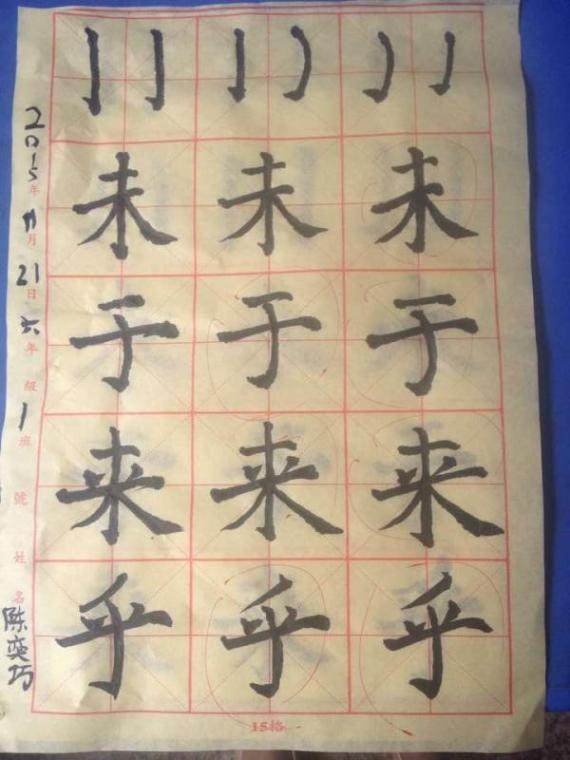 未未未
于于于
来来来
乎乎乎
2015年11月21日六年級1班 號 姓名 陈奕巧
15格